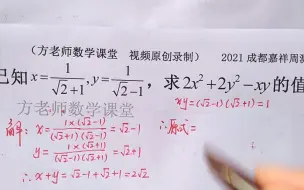 (方老师数学课堂 视频原创录制) 2021成都嘉祥周测
已知x=1/(√2+1),y=1/(√2-1),求2x²+2y²-xy的值
方老师数学课堂
解: x=1×(√2-1)/(√2+1)(√2-1)=√2-1
xy=(√2-1)(√2+1)=1
y=1×(√2+1)/(√2-1)(√2+1)=√2+1
∴原式=
∴x+y=√2-1+√2+1=2√2